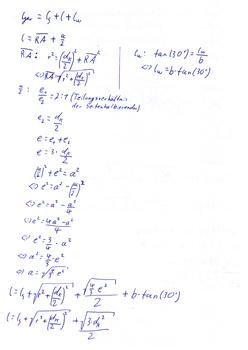 l_ges = l_s + l + l_w
l = R̅A̅ + a/2
R̅A̅ : r² = (d_k/2)² + R̅A̅²
⇔ R̅A̅ = √(r² + (d_k/2)²)
l_w: tan(30°) = l_w/b
⇔ l_w = b · tan(30°)
e₁/e₂ = 2:1 (Teilungsverhältnis der Seitenhalbierenden)
e₂ = d_k/2
e = e₁ + e₂
e = 3 · d_k/2
(a/2)² + e² = a²
⇔ e² = a² - (a/2)²
⇔ e² = a² - a²/4
⇔ e² = 4a² - a²/4
⇔ e² = 3/4 · a²
⇔ a² = 4/3 · e²
⇔ a = √(4/3 e²)
l = l_s + √(r² + (d_k/2)²) + √(4/3 e²)/2 + b · tan(30°)
l = l_s + √(r² + (d_k/2)²) + √(3d_k²)/2